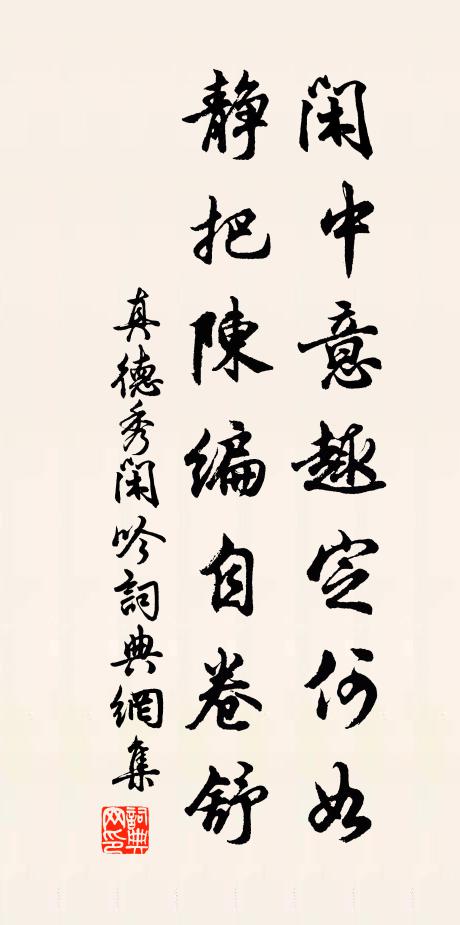 閑中意趣定何如
静把陳編自卷舒
真德秀閑吟詞典網集
詞典網印